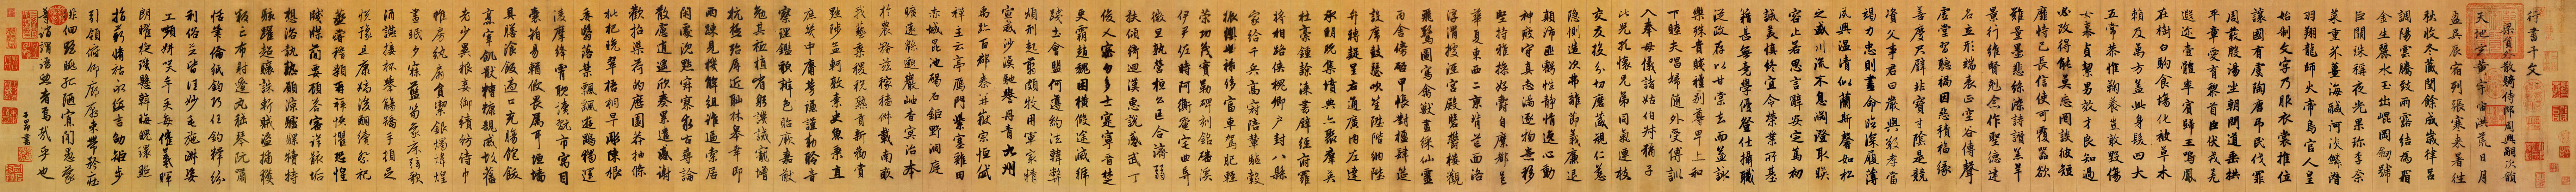 行書千文
梁員外散騎侍郎周興嗣次韻
天地玄黃宇宙洪荒日月
盈昃辰宿列張寒來暑往
秋收冬藏閏餘成歲律呂
調陽雲騰致雨露結為霜
金生麗水玉出崐岡劒號
巨闕珠稱夜光果珍李柰
菜重芥薑海鹹河淡鱗潛
羽翔龍師火帝鳥官人皇
始制文字乃服衣裳推位
讓國有虞陶唐弔民伐罪
周發殷湯坐朝問道垂拱
平章愛育黎首臣伏戎羌
遐迩壹體率賓歸王鳴鳳
在樹白駒食場化被草木
賴及萬方蓋此身髮四大
五常恭惟鞠養豈敢毀傷
女慕貞絜男效才良知過
必改得能莫忘罔談彼短
靡恃己長信使可覆器欲
難量墨悲絲淬詩讚羔羊
景行維賢剋念作聖德建
名立形端表正空谷傳聲
虛堂習聽禍因惡積福緣
善慶尺璧非寶寸陰是競
資父事君曰嚴與敬孝當
竭力忠則盡命臨深履薄
夙興溫凊似蘭斯馨如松
之盛川流不息淵澄取暎
容止若思言辭安定篤初
誠美慎終宜令榮業所基
藉甚無竟學優登仕攝職
從政存以甘棠去而益詠
樂殊貴賤禮別尊卑上和
下睦夫唱婦隨外受傅訓
入奉母儀諸姑伯叔猶子
比兒孔懷兄弟同氣連枝
交友投分切磨箴規仁慈
隱惻造次弗離節義廉退
顛沛匪虧性靜情逸心動
神疲守真志滿逐物意移
堅持雅操好爵自縻都邑
華夏東西二京背芒面洛
浮渭據涇宮殿盤鬱樓觀
飛驚圖寫禽獸畫綵仙靈
丙舍傍啓甲帳對楹肆筵
設席鼓瑟吹笙陞階納陛
弁轉疑星右通廣內左達
承明既集墳典亦聚群英
杜稾鍾隸漆書壁經府羅
將相路俠槐卿户封八縣
家給千兵高冠陪輦驅轂
振纓世祿侈富車駕肥輕
策功茂實勒碑刻銘磻溪
伊尹佐時阿衡奄宅曲阜
微旦孰營桓公匡合濟弱
扶傾綺迴漢惠說感武丁
俊乂密勿多士寔寧晉楚
更霸趙魏困橫假途滅虢
踐土會盟何遵約法韓弊
煩刑起翦頗牧用軍最精
宣威沙漠馳譽丹青九州
禹跡百郡秦并嶽宗恒岱
禪主云亭鴈門紫塞雞田
赤城昆池碣石鉅野洞庭
曠遠緜邈巖岫杳冥治本
於農務茲稼穡俶載南畝
我藝黍稷稅熟貢新勸賞
黜陟孟軻敦素史魚秉直
庶幾中庸勞謙謹勑聆音
察理鑑貌辨色貽厥嘉猷
勉其祗植省躬譏誡寵增
抗極殆辱近恥林皐幸即
兩疏見機解組誰逼索居
閑處沉默寂寥求古尋論
散慮逍遙欣奏累遣慼謝
歡招渠荷的歷園莽抽條
枇杷晚翠梧桐早彫陳根
委翳落葉飄颻遊鵾獨運
凌摩絳霄耽讀翫市寓目
囊箱易輶攸畏屬耳垣墻
具膳湌飯適口充腸飽飫
烹宰飢猒糟糠親戚故舊
老少異粮妾御績紡侍巾
帷房紈扇圓潔銀燭煒煌
晝眠夕寐籃笋象床絃歌
酒讌接杯舉觴矯手頓足
悅豫且康嫡後嗣續祭祀
蒸嘗稽顙再拜悚懼恐惶
牋牒簡要顧答審詳骸垢
想浴執熱願涼驢騾犢特
駭躍超驤誅斬賊盜捕獲
叛亡布射遼丸嵇琴阮嘯
恬筆倫紙鈞巧任釣釋紛
利俗並皆佳妙毛施淑姿
工嚬妍笑年矢每催羲暉
朗曜琁璣懸斡晦魄環照
指薪脩祜永綏吉劭矩步
引領俯仰廊廟束帶矜莊
徘徊瞻眺孤陋寡聞愚蒙
等誚謂語助者焉哉乎也
子昂書